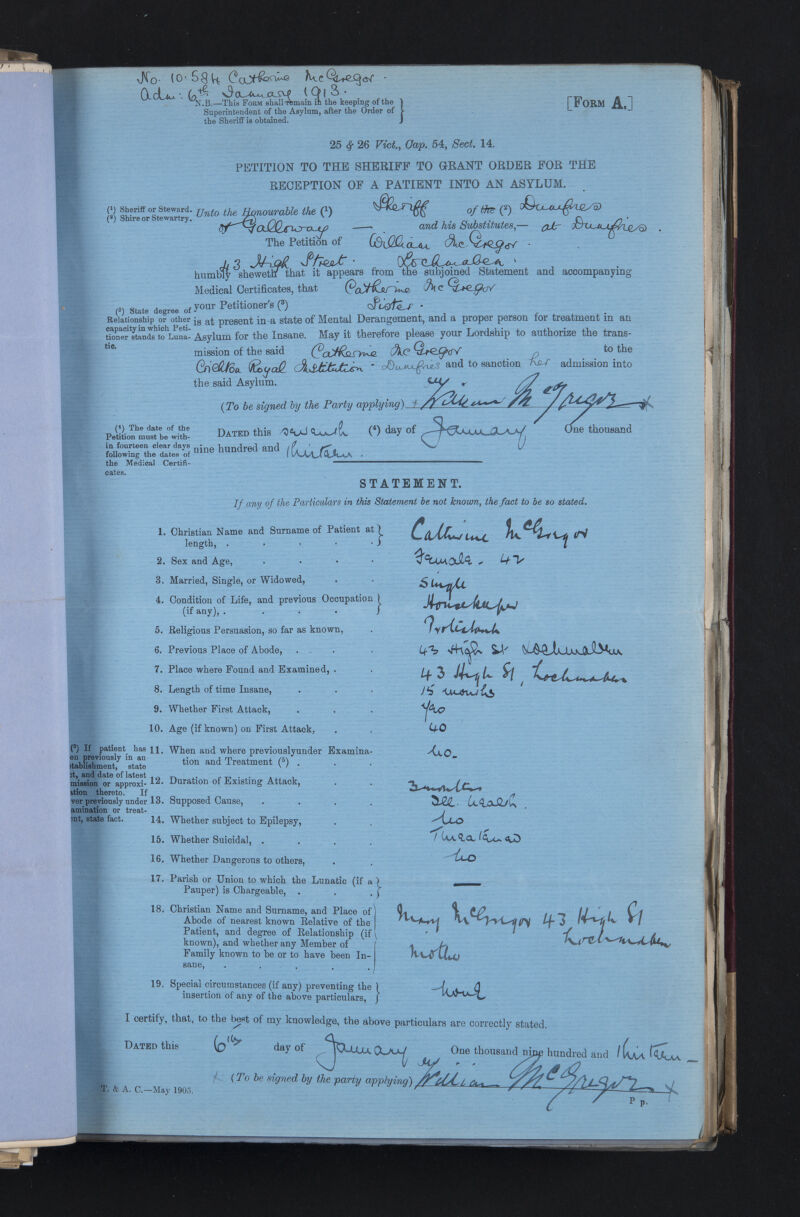 No. 10.584 Catherine McGregor.
Adm: 6th January 1913.
N.B.—This Form shall remain in the keeping of the
Superintendent of the Asylum, after the Order of
the Sheriff is obtained.
[Form A.]
25 & 26 Vict., Cap. 54, Sect. 14.
PETITION TO THE SHERIFF TO GRANT ORDER FOR THE
RECEPTION OF A PATIENT INTO AN ASYLUM.
(1) Sheriff or Steward.
(2) Shire or Stewartry.
Unto the Honourable the (1) Sheriff of the (2) Dumfries
& Galloway — and his Substitutes,— at Dumfries.
The Petition of William McGregor.
43 High Street. Lochmaben.
humbly sheweth that it appears from the subjoined Statement and accompanying
Medical Certificates, that Catherine McGregor
your Petitioner's (3) Sister.
(3) State degree of
Relationship or other
capacity in which Peti-
tioner stands to Luna-
tic.
is at present in a state of Mental Derangement, and a proper person for treatment in an
Asylum for the Insane. May it therefore please your Lordship to authorize the trans-
mission of the said Catherine McGregor to the
Crichton Royal Institution - Dumfries and to sanction her admission into
the said Asylum.
(To be signed by the Party applying) + William McGregor x
(4) The date of the
Petition must be with-
in fourteen clear days
following the dates of
the Medical Certifi-
cates.
Dated this seventh (4) day of January One thousand
nine hundred and thirteen.
STATEMENT.
If any of the Particulars in this Statement be not known, the fact to be so stated.
1. Christian Name and Surname of Patient at
length, . Catherine McGregor
2. Sex and Age, Female. 42
3. Married, Single, or Widowed, Single
4. Condition of Life, and previous Occupation
(if any), . Housekeeper
5. Religious Persuasion, so far as known, Protestant
6. Previous Place of Abode, 43 High St Lochmaben
7. Place where Found and Examined, . 43 High St, Lochmaben
8. Length of time Insane, 15 months
9. Whether First Attack, Yes
10. Age (if known) on First Attack, 40
(5) If patient has
en previously in an
stablishment, state
it, and date of latest
mission or approxi-
ation thereto. If
ver previously under
amination or treat-
ent, state fact.
11. When and where previously under Examina-
tion and Treatment (5) . No.
12. Duration of Existing Attack, 3 months
13. Supposed Cause, Ill health.
14. Whether subject to Epilepsy, No
15. Whether Suicidal, . Threatened
16. Whether Dangerous to others, No
17. Parish or Union to which the Lunatic (if a
Pauper) is Chargeable, . —
18. Christian Name and Surname, and Place of
Abode of nearest known Relative of the
Patient, and degree of Relationship (if
known), and whether any Member of
Family known to be or to have been In-
sane,
Mary McGregor 43 High St
Lochmaben
Mother
19. Special circumstances (if any) preventing the
insertion of any of the above particulars, None
I certify, that, to the best of my knowledge, the above particulars are correctly stated.
Dated this 6th day of January One thousand nine hundred and thirteen
(To be signed by the party applying) William McGregor x
T. & A. C.—May 1905.
P p.